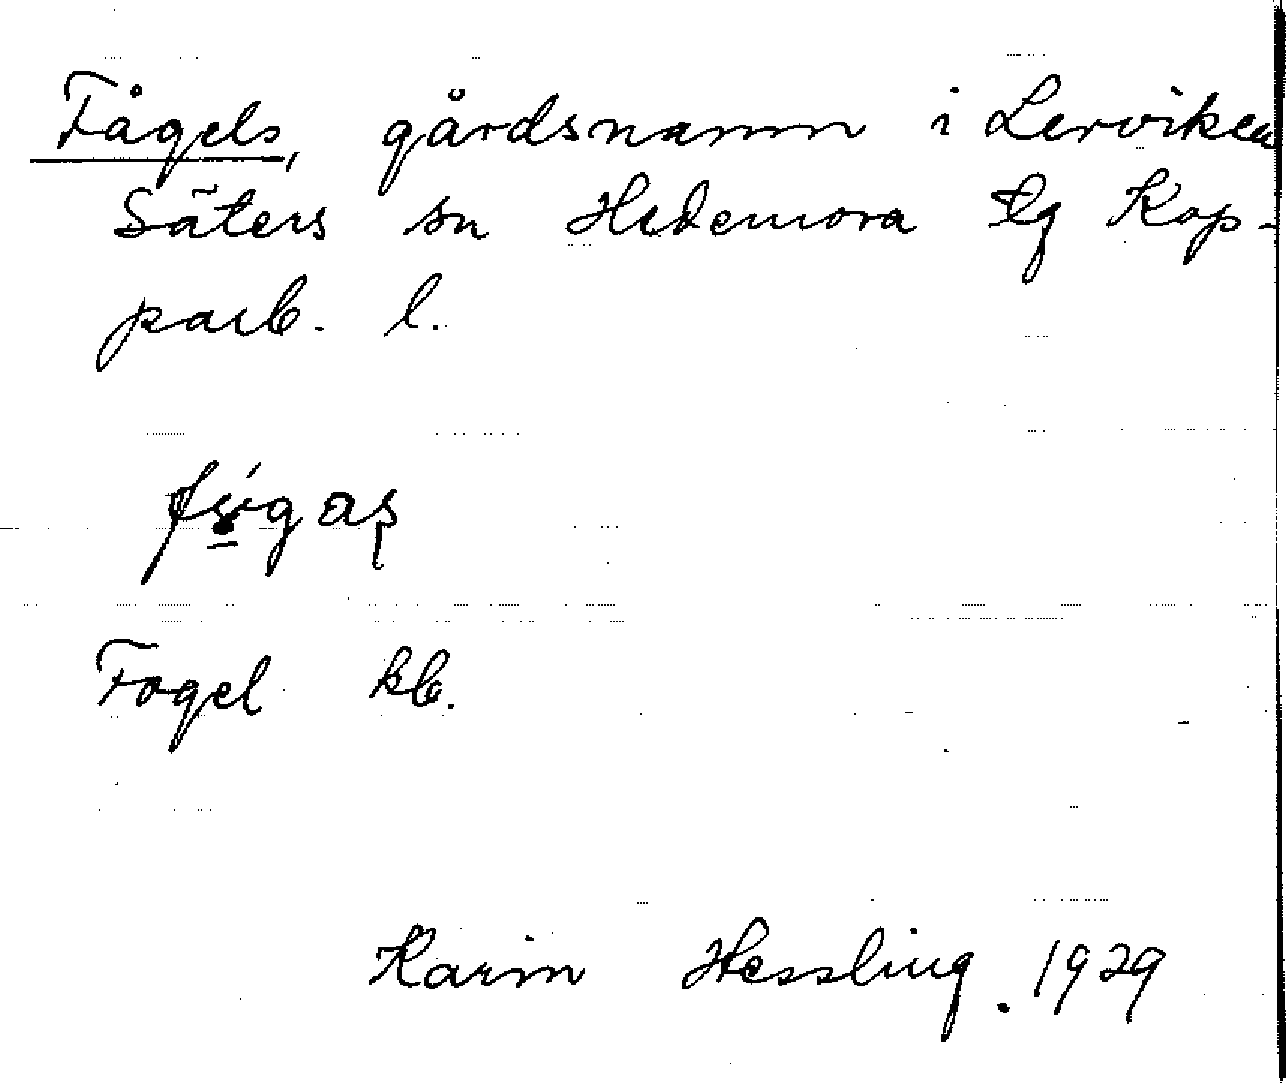 Fågels, gårdsnamn i Lerviken
Säters sn Hedemora tg Kop-
parb. l.
Fogel kb.
Karin Hessling. 1929